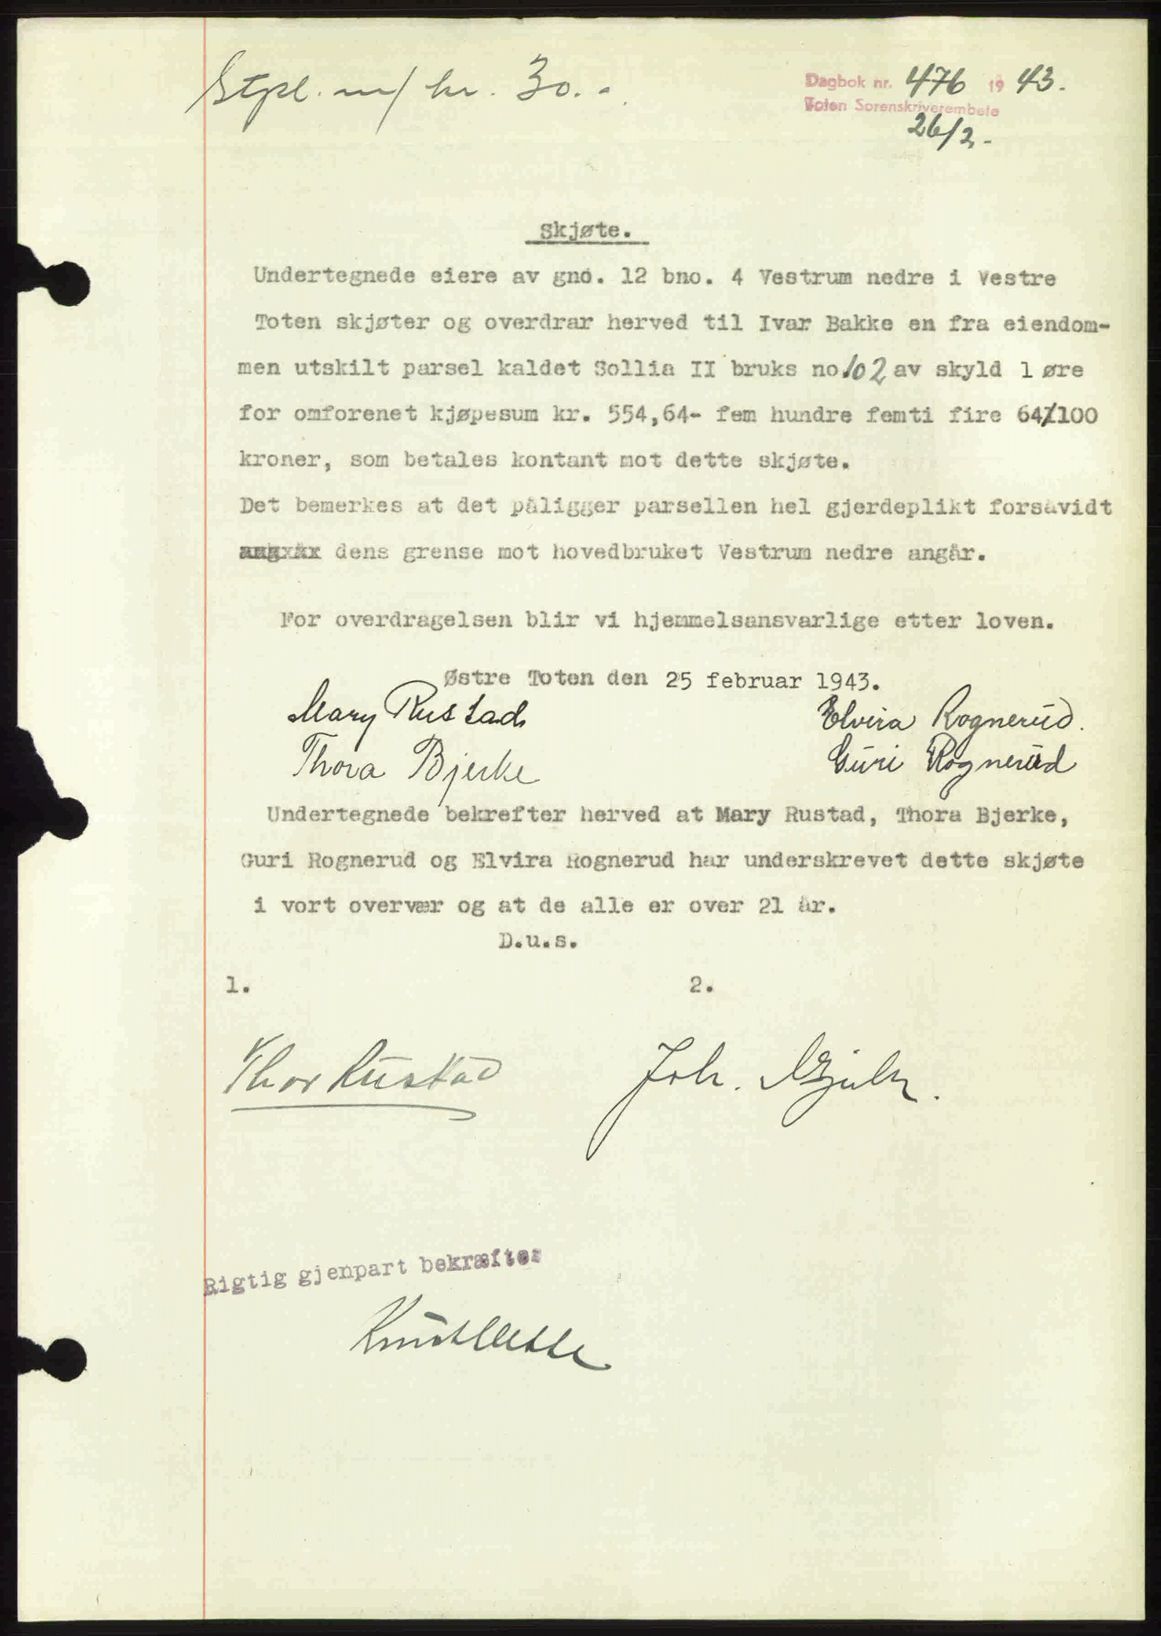 Stpl. m/ kr. 30.-
Dagbok nr. 476 1943.
Toten Sorenskriverembete
26/2.-
Skjøte.
Undertegnede eiere av gno. 12 bno. 4 Vestrum nedre i Vestre
Toten skjøter og overdrar herved til Ivar Bakke en fra eiendom-
men utskilt parsel kaldet Sollia II bruks no 102 av skyld 1 øre
for omforenet kjøpesum kr. 554,64- fem hundre femti fire 64/100
kroner, som betales kontant mot dette skjøte.
Det bemerkes at det påligger parsellen hel gjerdeplikt forsåvidt
dens grense mot hovedbruket Vestrum nedre angår.
For overdragelsen blir vi hjemmelsansvarlige etter loven.
Østre Toten den 25 februar 1943.
Mary Rustad Elvira Rognerud.
Thora Bjerke Guri Rognerud
Undertegnede bekrefter herved at Mary Rustad, Thora Bjerke,
Guri Rognerud og Elvira Rognerud har underskrevet dette skjøte
i vort overvær og at de alle er over 21 år.
D.u.s.
1. 2.
Thor Rustad Joh.
Rigtig gjenpart bekræftes